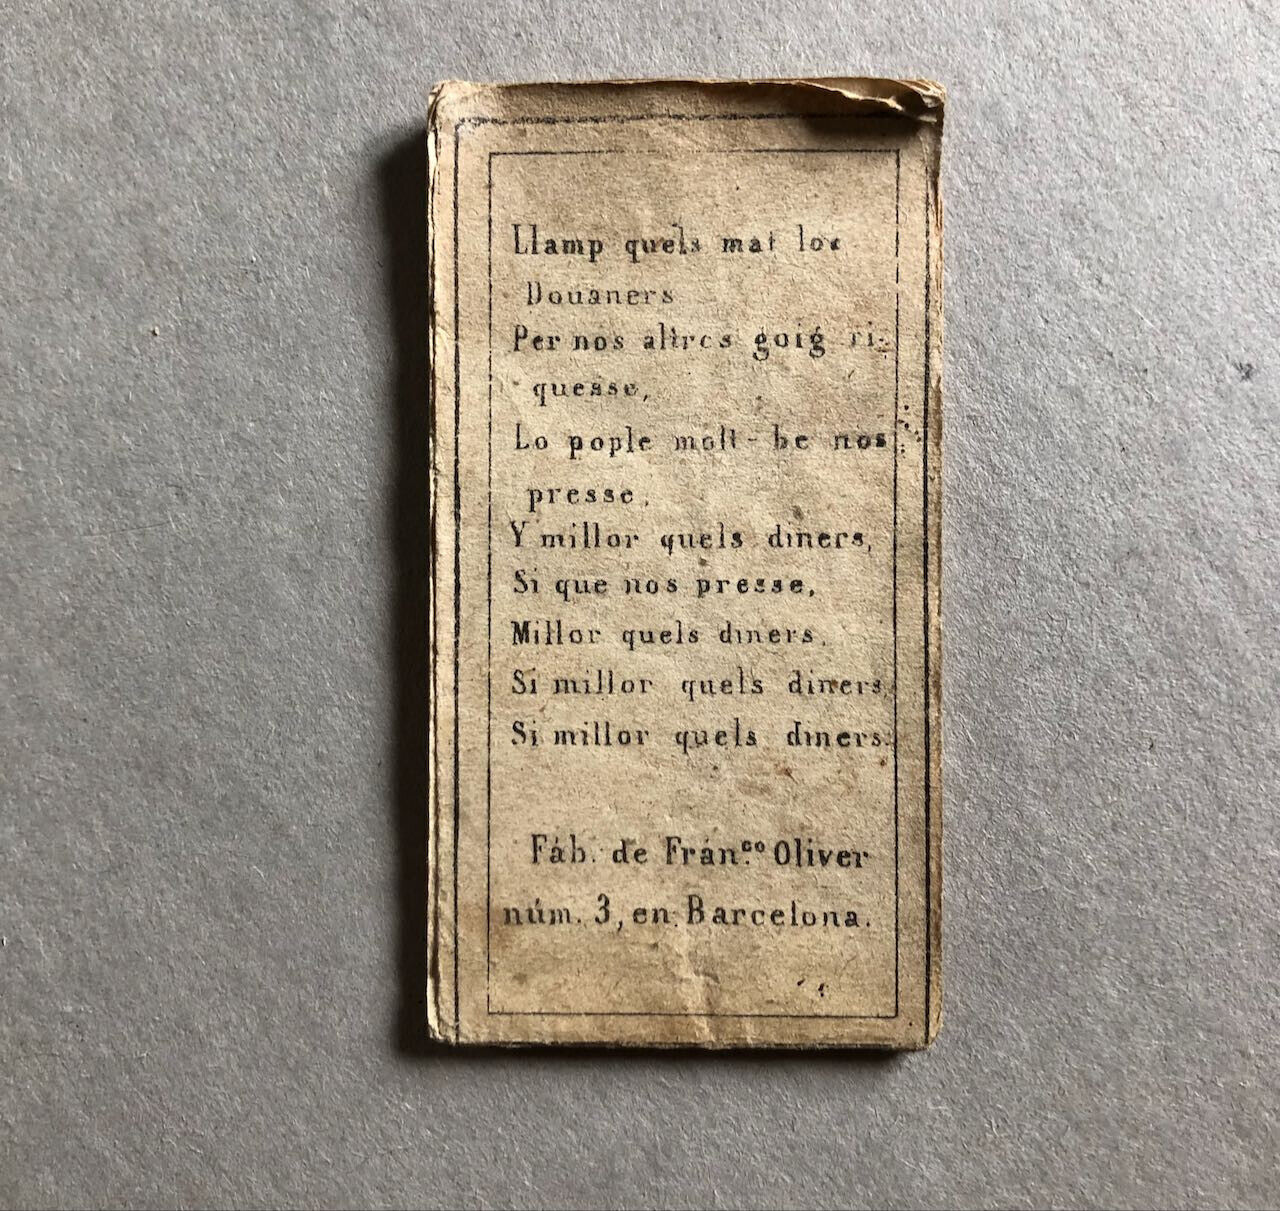 Llamp quels mat los
Douaners
Per nos altres goig ri-
quesse,
Lo pople molt-be nos
presse,
Y millor quels diners,
Si que nos presse,
Millor quels diners,
Si millor quels diners,
Si millor quels diners.
Fáb. de Frán.co Oliver
núm. 3, en Barcelona.